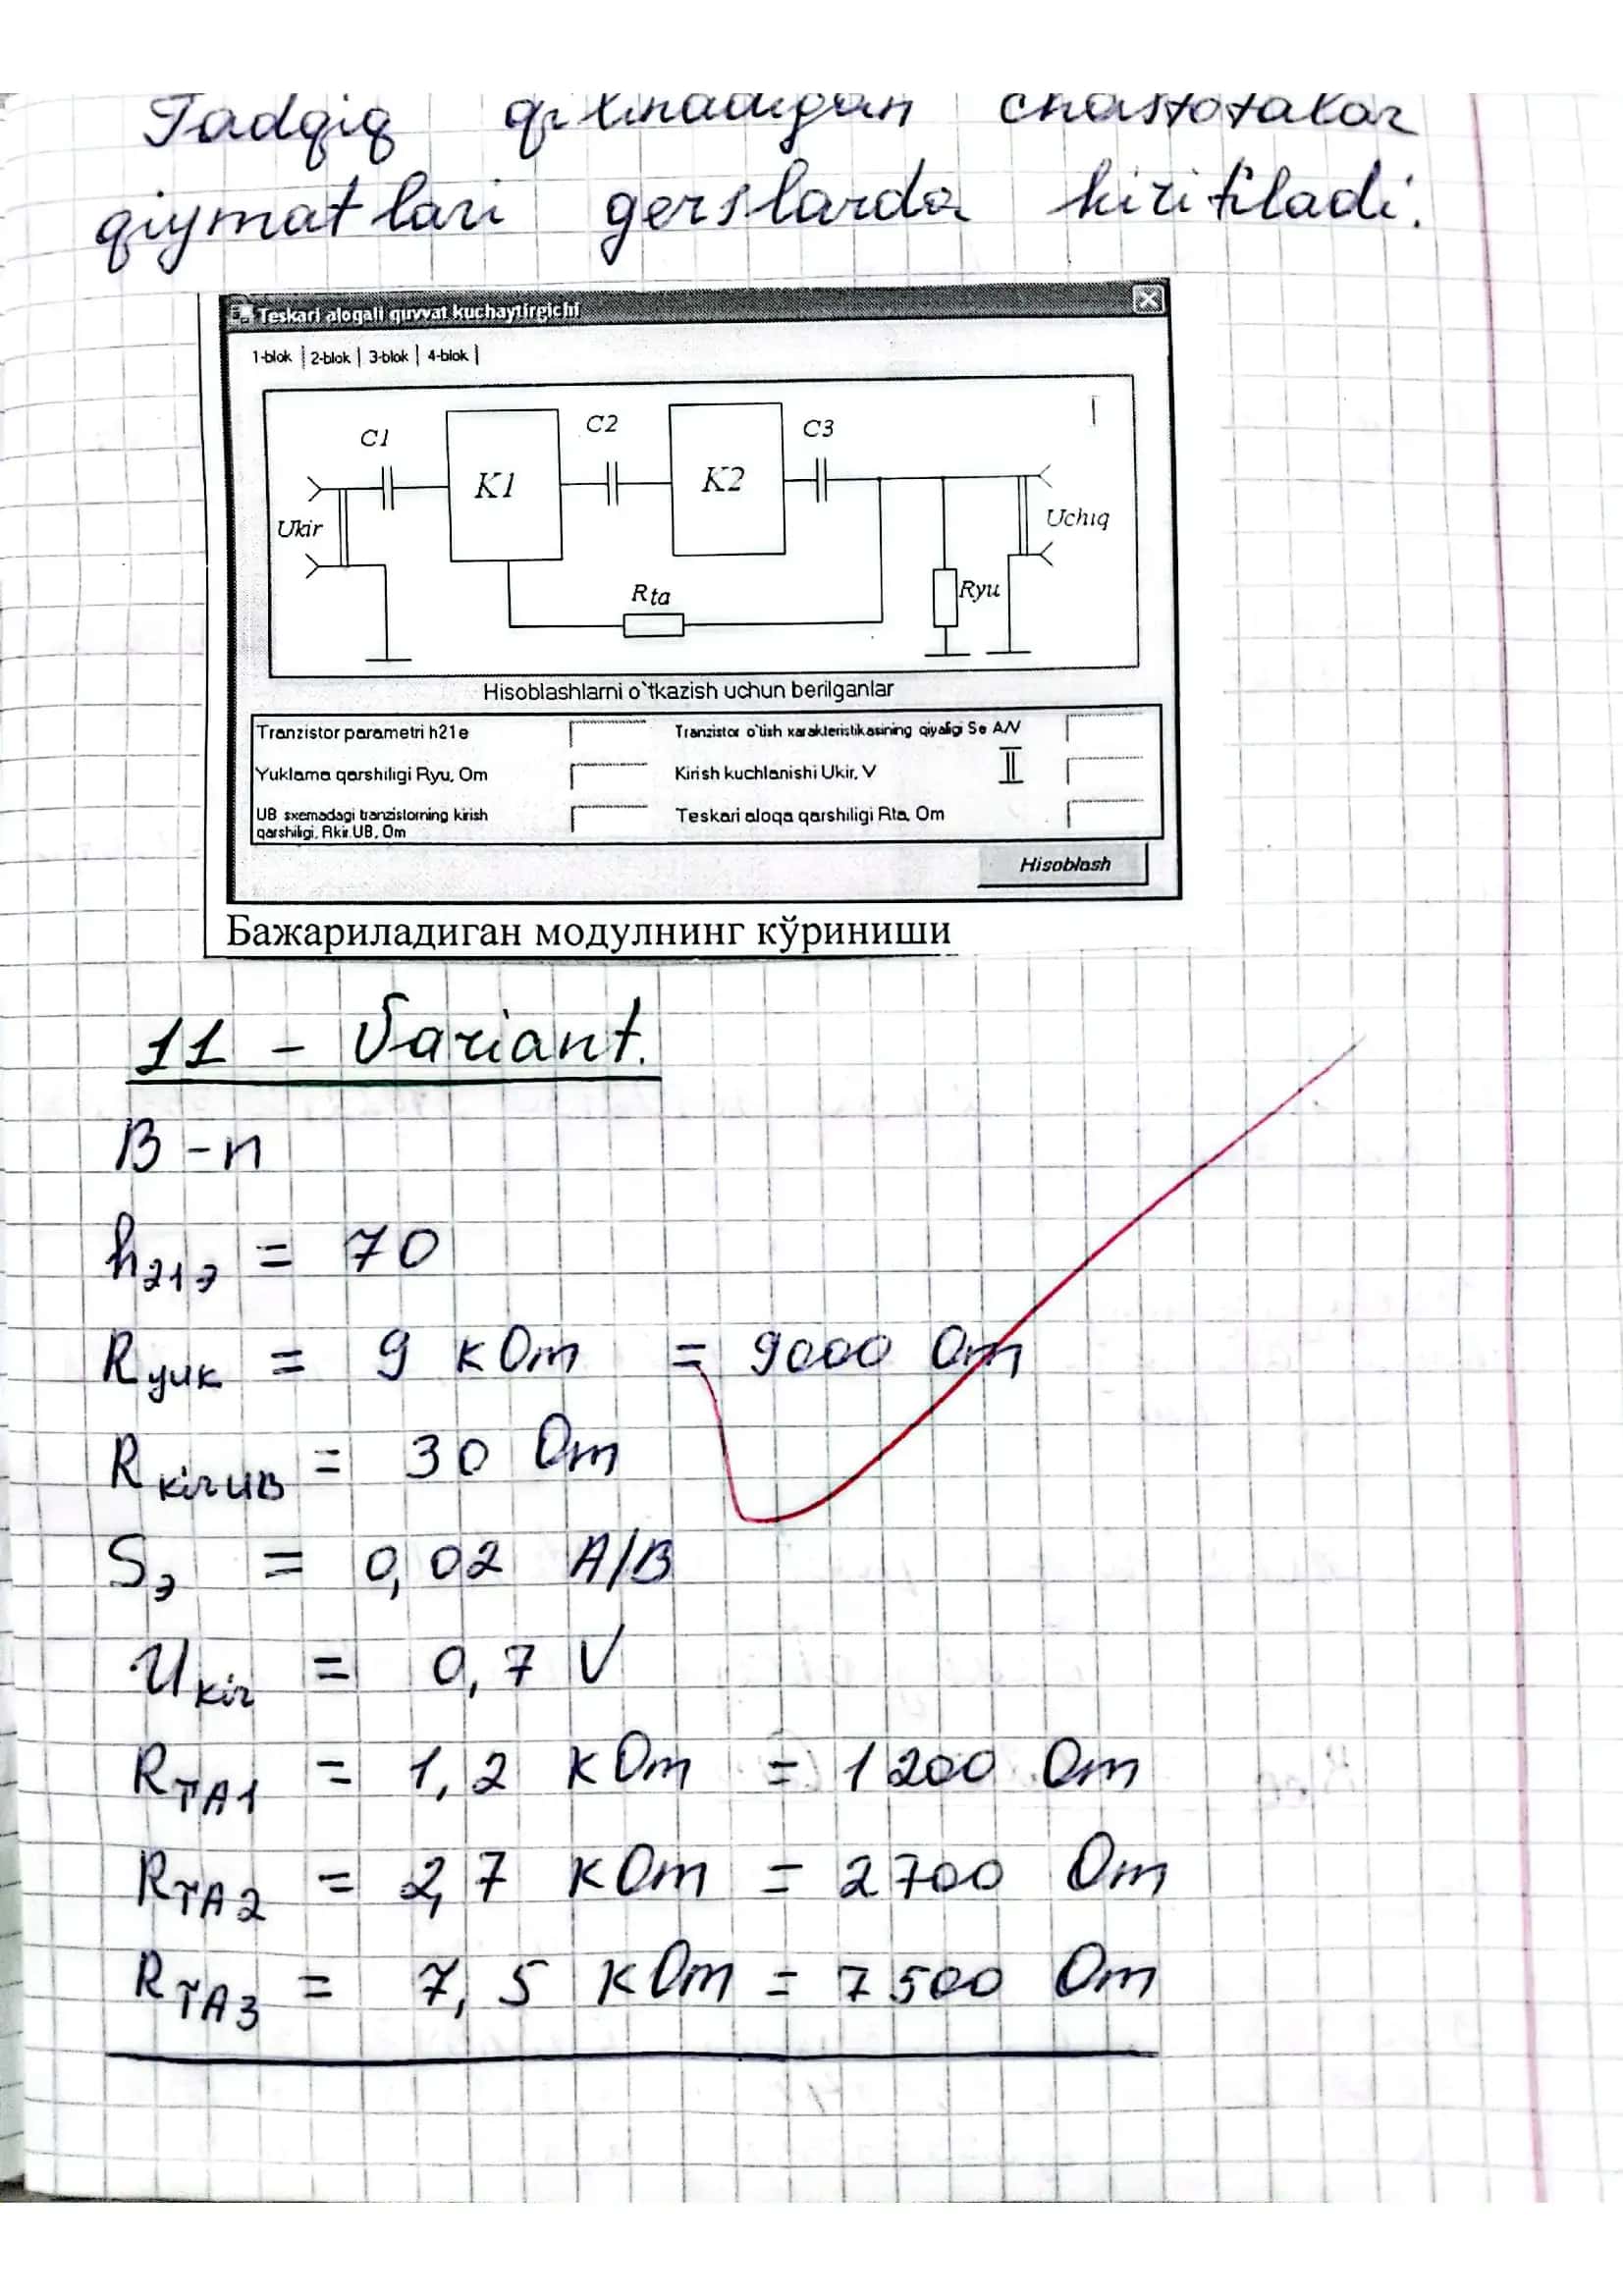 Tadqiq qilinadigan chastotalar
qiymatlari gerslarda kiritiladi.
Teskari aloqali quvvat kuchaytirgichi
1-blok | 2-blok | 3-blok | 4-blok |
C1
C2
C3
K1
K2
Ukir
Uchiq
Rta
Ryu
I
Hisoblashlarni o`tkazish uchun berilganlar
Tranzistor parametri h21e
Tranzistor o'tish xarakteristikasining qiyaligi Se A/V
Yuklama qarshiligi Ryu, Om
Kirish kuchlanishi Ukir, V
II
UB sxemadagi tranzistorning kirish
qarshiligi, Rkir.UB, Om
Teskari aloqa qarshiligi Rta, Om
Hisoblash
Бажариладиган модулнинг кўриниши
11 - Variant.
B-n
h21э = 70
Ryuk = 9 kOm = 9000 Om
RkirUB = 30 Om
Sэ = 0,02 A/B
Ukir = 0,7 V
RTA1 = 1,2 kOm = 1200 Om
RTA2 = 2,7 kOm = 2700 Om
RTA3 = 7,5 kOm = 7500 Om